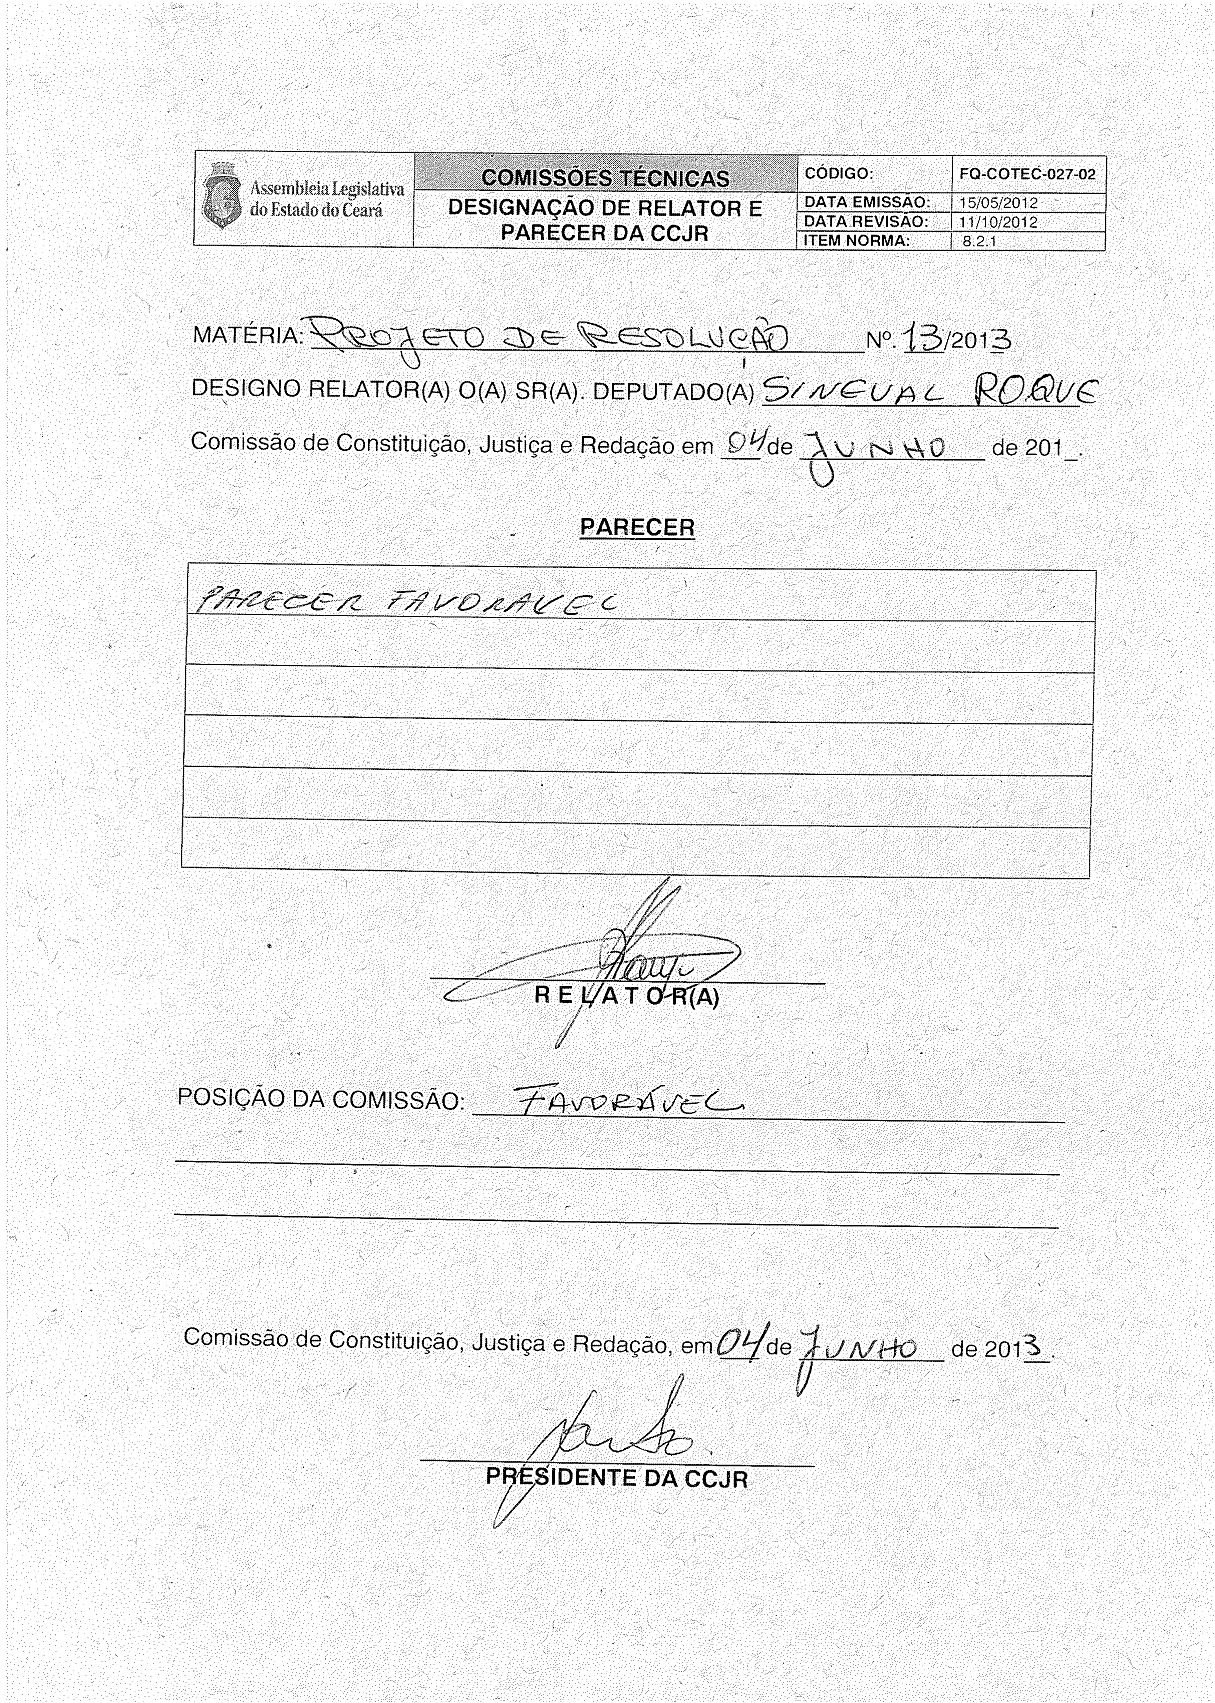 Assembleia Legislativa
do Estado do Ceará
COMISSÕES TÉCNICAS
DESIGNAÇÃO DE RELATOR E
PARECER DA CCJR
CÓDIGO: FQ-COTEC-027-02
DATA EMISSÃO: 15/05/2012
DATA REVISÃO: 11/10/2012
ITEM NORMA: 8.2.1
MATÉRIA: PROJETO DE RESOLUÇÃO Nº. 13/2013
DESIGNO RELATOR(A) O(A) SR(A). DEPUTADO(A) SINEVAL ROQUE
Comissão de Constituição, Justiça e Redação em 04 de JUNHO de 201_.
PARECER
PARECER FAVORAVEL
RELATOR(A)
POSIÇÃO DA COMISSÃO: FAVORÁVEL
Comissão de Constituição, Justiça e Redação, em 04 de JUNHO de 2013.
PRESIDENTE DA CCJR